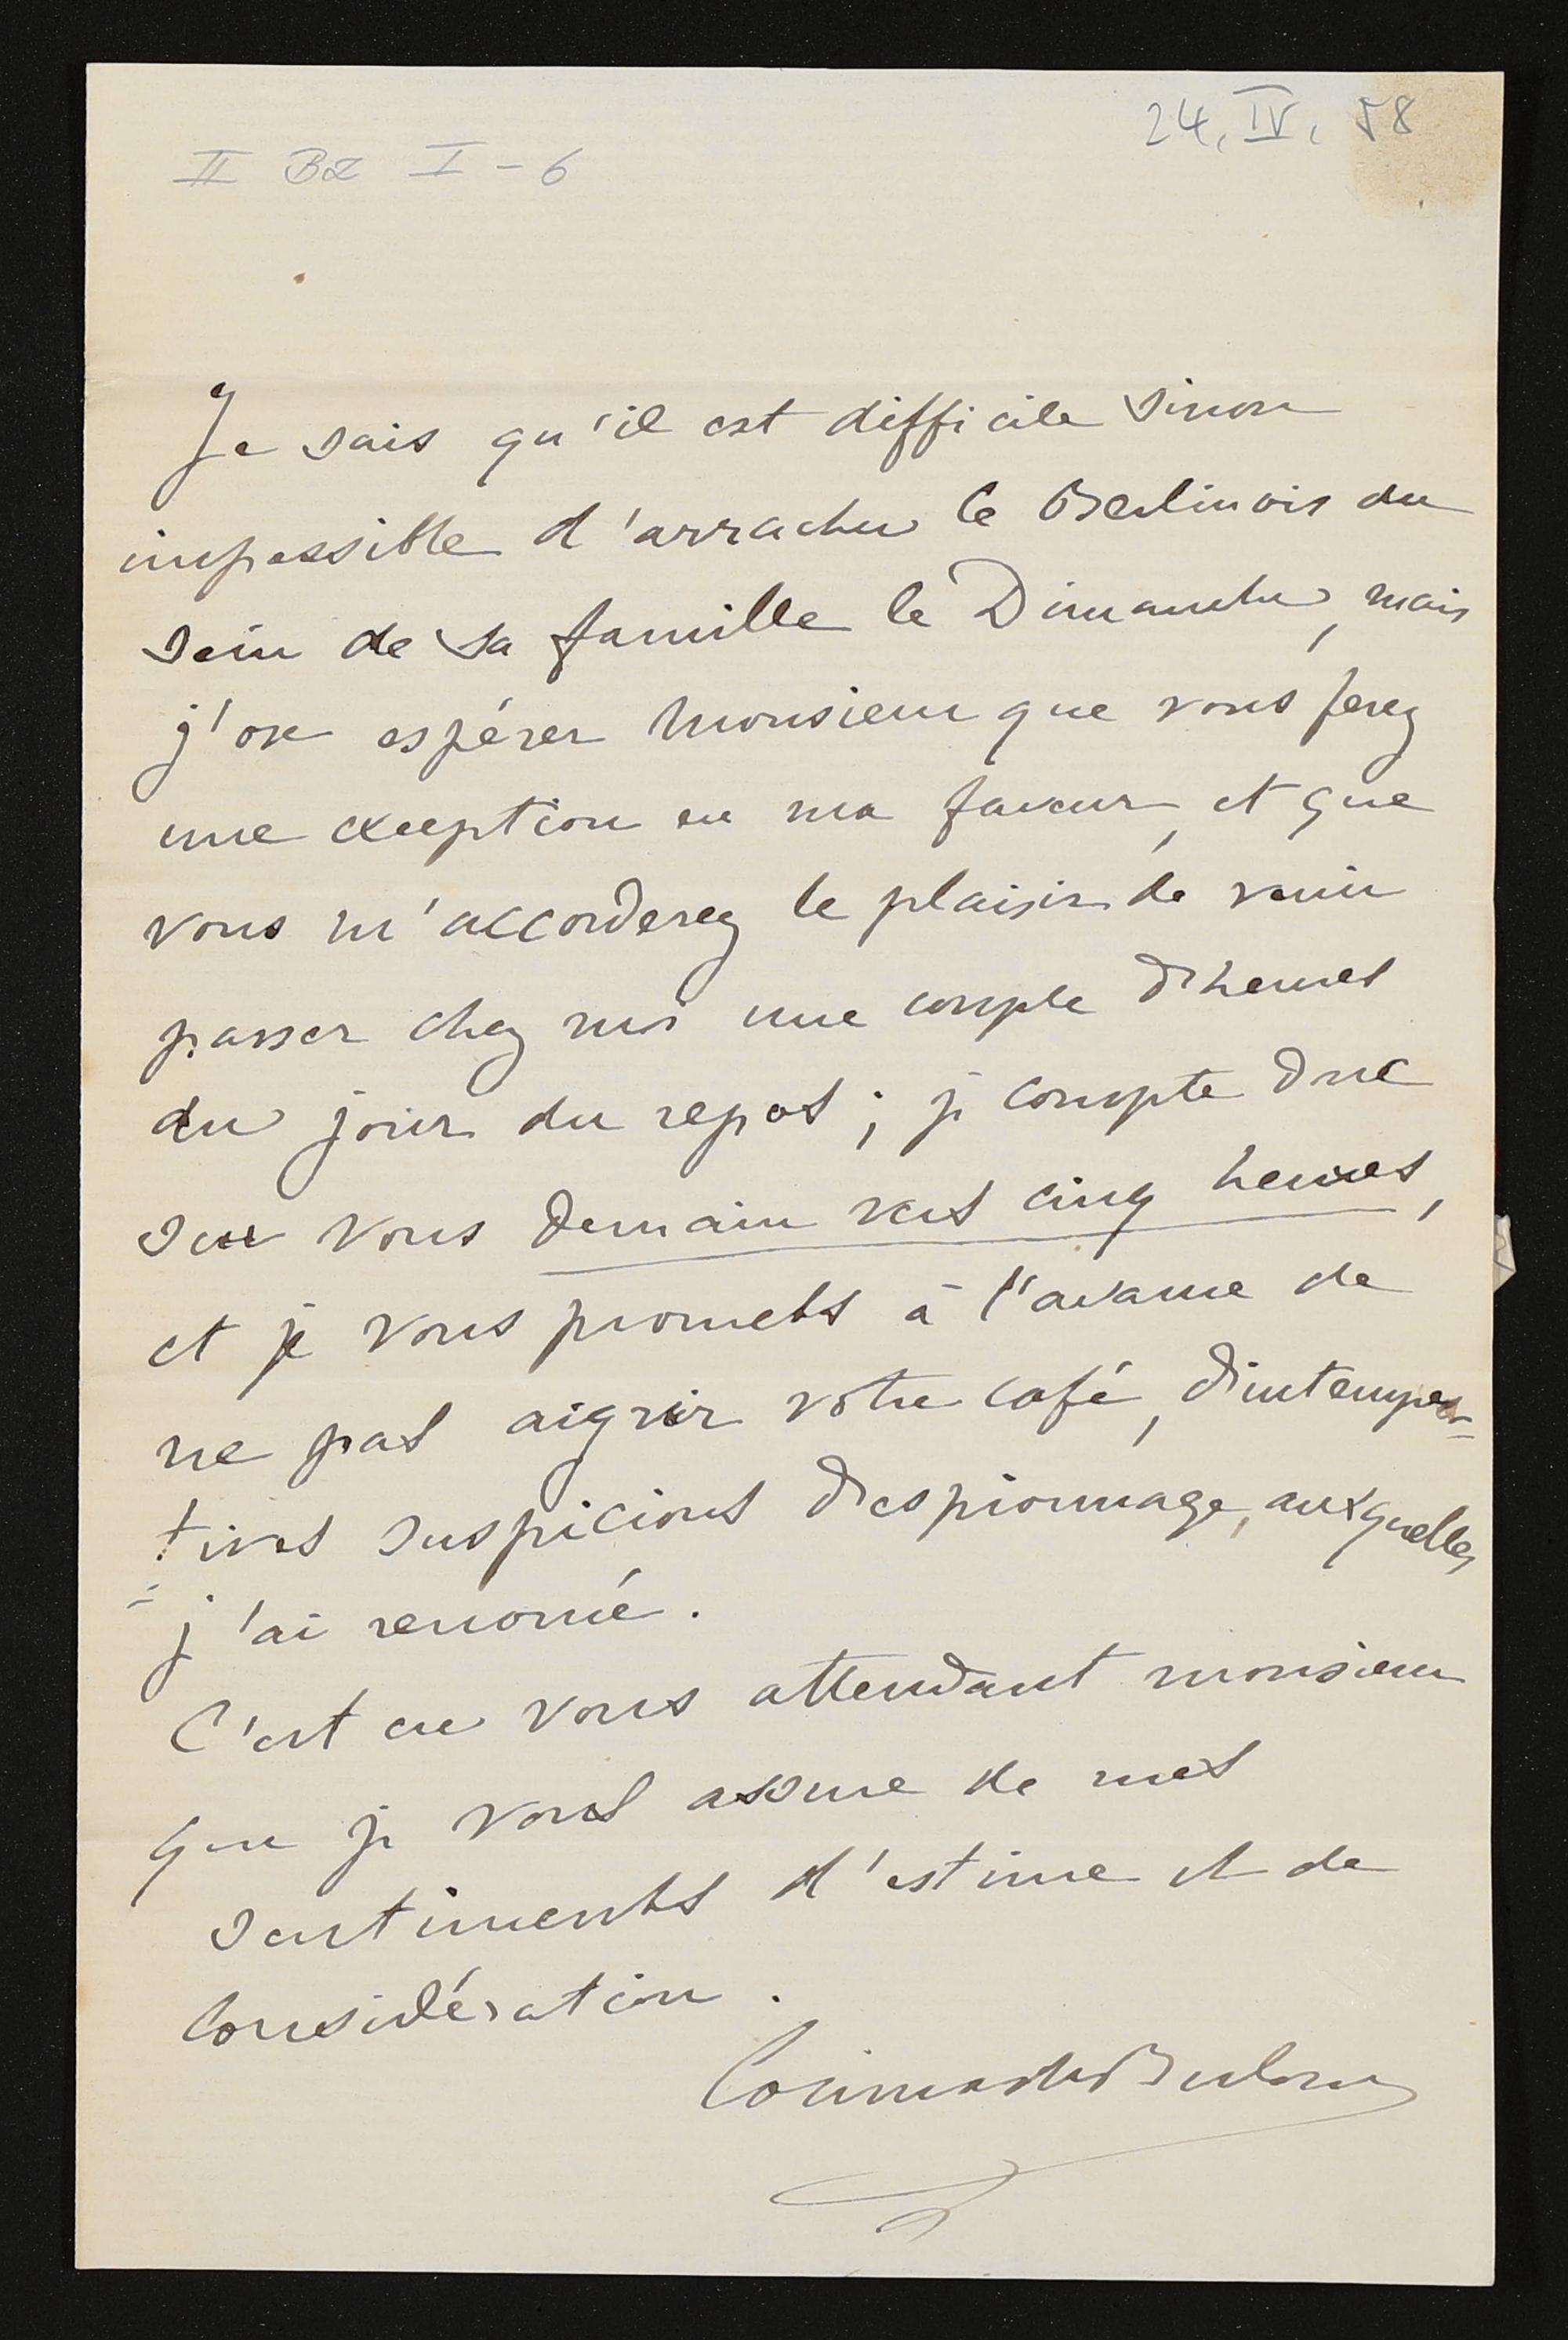 24. IV. 58
II Bz I - 6
Je sais qu'il est difficile sinon
impossible d'arracher le Berlinois du
sein de sa famille le Dimanche, mais
j'ose espérer monsieur que vous ferez
une exeption en ma faveur, et que
vous m'accorderez le plaisir de venir
passer chez moi une couple d'heures
du jour du repos ; je compte donc
sur vous demain vers cinq heures,
et je vous promets à l'avance de
ne pas aigrir votre café, d'intempes-
tives suspicions d'espionnage, auxquelles
j'ai renoncé.
C'est en vous attendant monsieur
que je vous assure de mes
sentiments d'estime et de
considération.
Cosima de Bulow